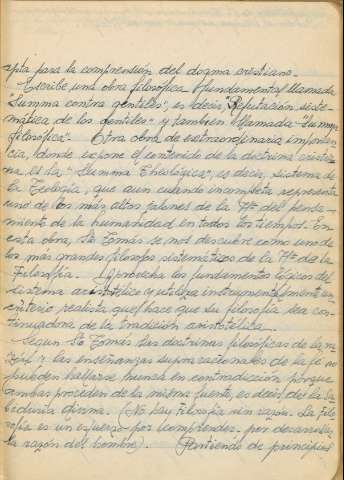 epta para la comprensión del dogma cristiano.
Escribe una obra filosófica fundamental llamada
"Summa contra gentiles", es decir, "Refutación siste-
mática de los gentiles" y tambien llamada "Summa
filosófica". Otra obra de extraordinaria importan-
cia, donde expone el contenido de la doctrina cristia-
na es la "Summa Theológica", es decir, sistema de
la Teología, que aun cuando incompleta, representa
uno de los más altos jalones de la Hª del pensa-
miento de la humanidad en todos los tiempos. En
esta obra, Sto Tomás se nos descubre como uno de
los mas grandes filosofos sistemáticos de la Hª de la
Filosofía. Aprovecha los fundamentos lógicos del
sistema aristotélico y utiliza instrumentalmente un
criterio realista que hace que su filosofía sea con-
tinuadora de la tradición aristotélica.
Segun Sto Tomás las doctrinas filosóficas de la ra-
zón y las enseñanzas supraracionales de la fe no
pueden hallarse nunca en contradicción porque
ambas proceden de la misma fuente, es decir, de la sa-
biduria divina. (No hay filosofía sin razón. La filo-
sofía es un esfuerzo por comprender, por desarrollar
la razón del hombre). Partiendo de principios